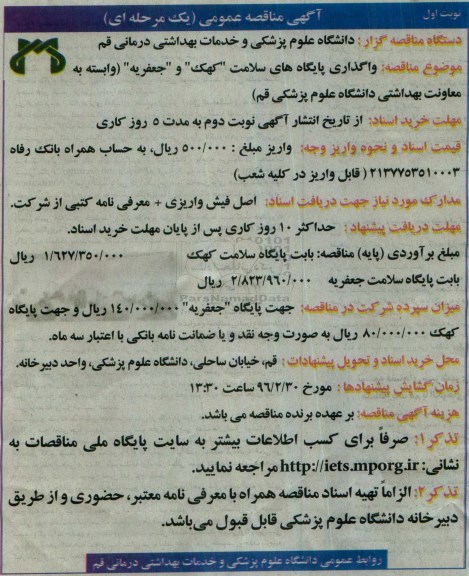 نوبت اول
آگهی مناقصه عمومی (یک مرحله ای)
دستگاه مناقصه گزار: دانشگاه علوم پزشکی و خدمات بهداشتی درمانی قم
موضوع مناقصه: واگذاری پایگاه های سلامت "کهک" و "جعفریه" (وابسته به
معاونت بهداشتی دانشگاه علوم پزشکی قم)
مهلت خرید اسناد: از تاریخ انتشار آگهی نوبت دوم به مدت ۵ روز کاری
قیمت اسناد و نحوه واریز وجه: واریز مبلغ : ۵۰۰/۰۰۰ ریال، به حساب همراه بانک رفاه
۲۱۳۷۷۵۳۵۱۰۰۰۳ ( قابل واریز در کلیه شعب)
مدارک مورد نیاز جهت دریافت اسناد: اصل فیش واریزی + معرفی نامه کتبی از شرکت.
مهلت دریافت پیشنهاد : حداکثر ۱۰ روز کاری پس از پایان مهلت خرید اسناد.
مبلغ برآوردی (پایه) مناقصه: بابت پایگاه سلامت کهک ۱/۶۲۷/۳۵۰/۰۰۰ ریال
بابت پایگاه سلامت جعفریه ۲/۸۲۳/۹۶۰/۰۰۰ ریال
میزان سپرده شرکت در مناقصه: جهت پایگاه "جعفریه" ۱۴۰/۰۰۰/۰۰۰ ریال و جهت پایگاه
کهک ۸۰/۰۰۰/۰۰۰ ریال به صورت وجه نقد و یا ضمانت نامه بانکی با اعتبار سه ماه.
محل خرید اسناد و تحویل پیشنهادات : قم، خیابان ساحلی، دانشگاه علوم پزشکی، واحد دبیرخانه.
زمان گشایش پیشنهادها : مورخ ۹۶/۲/۳۰ ساعت ۱۳:۳۰
هزینه آگهی مناقصه: بر عهده برنده مناقصه می باشد.
تذکر۱: صرفاً برای کسب اطلاعات بیشتر به سایت پایگاه ملی مناقصات به
نشانی: http://iets.mporg.ir مراجعه نمایید.
تذکر۲: الزاماً تهیه اسناد مناقصه همراه با معرفی نامه معتبر، حضوری و از طریق
دبیرخانه دانشگاه علوم پزشکی قابل قبول می‌باشد.
روابط عمومی دانشگاه علوم پزشکی و خدمات بهداشتی درمانی قم
ParsNamadData